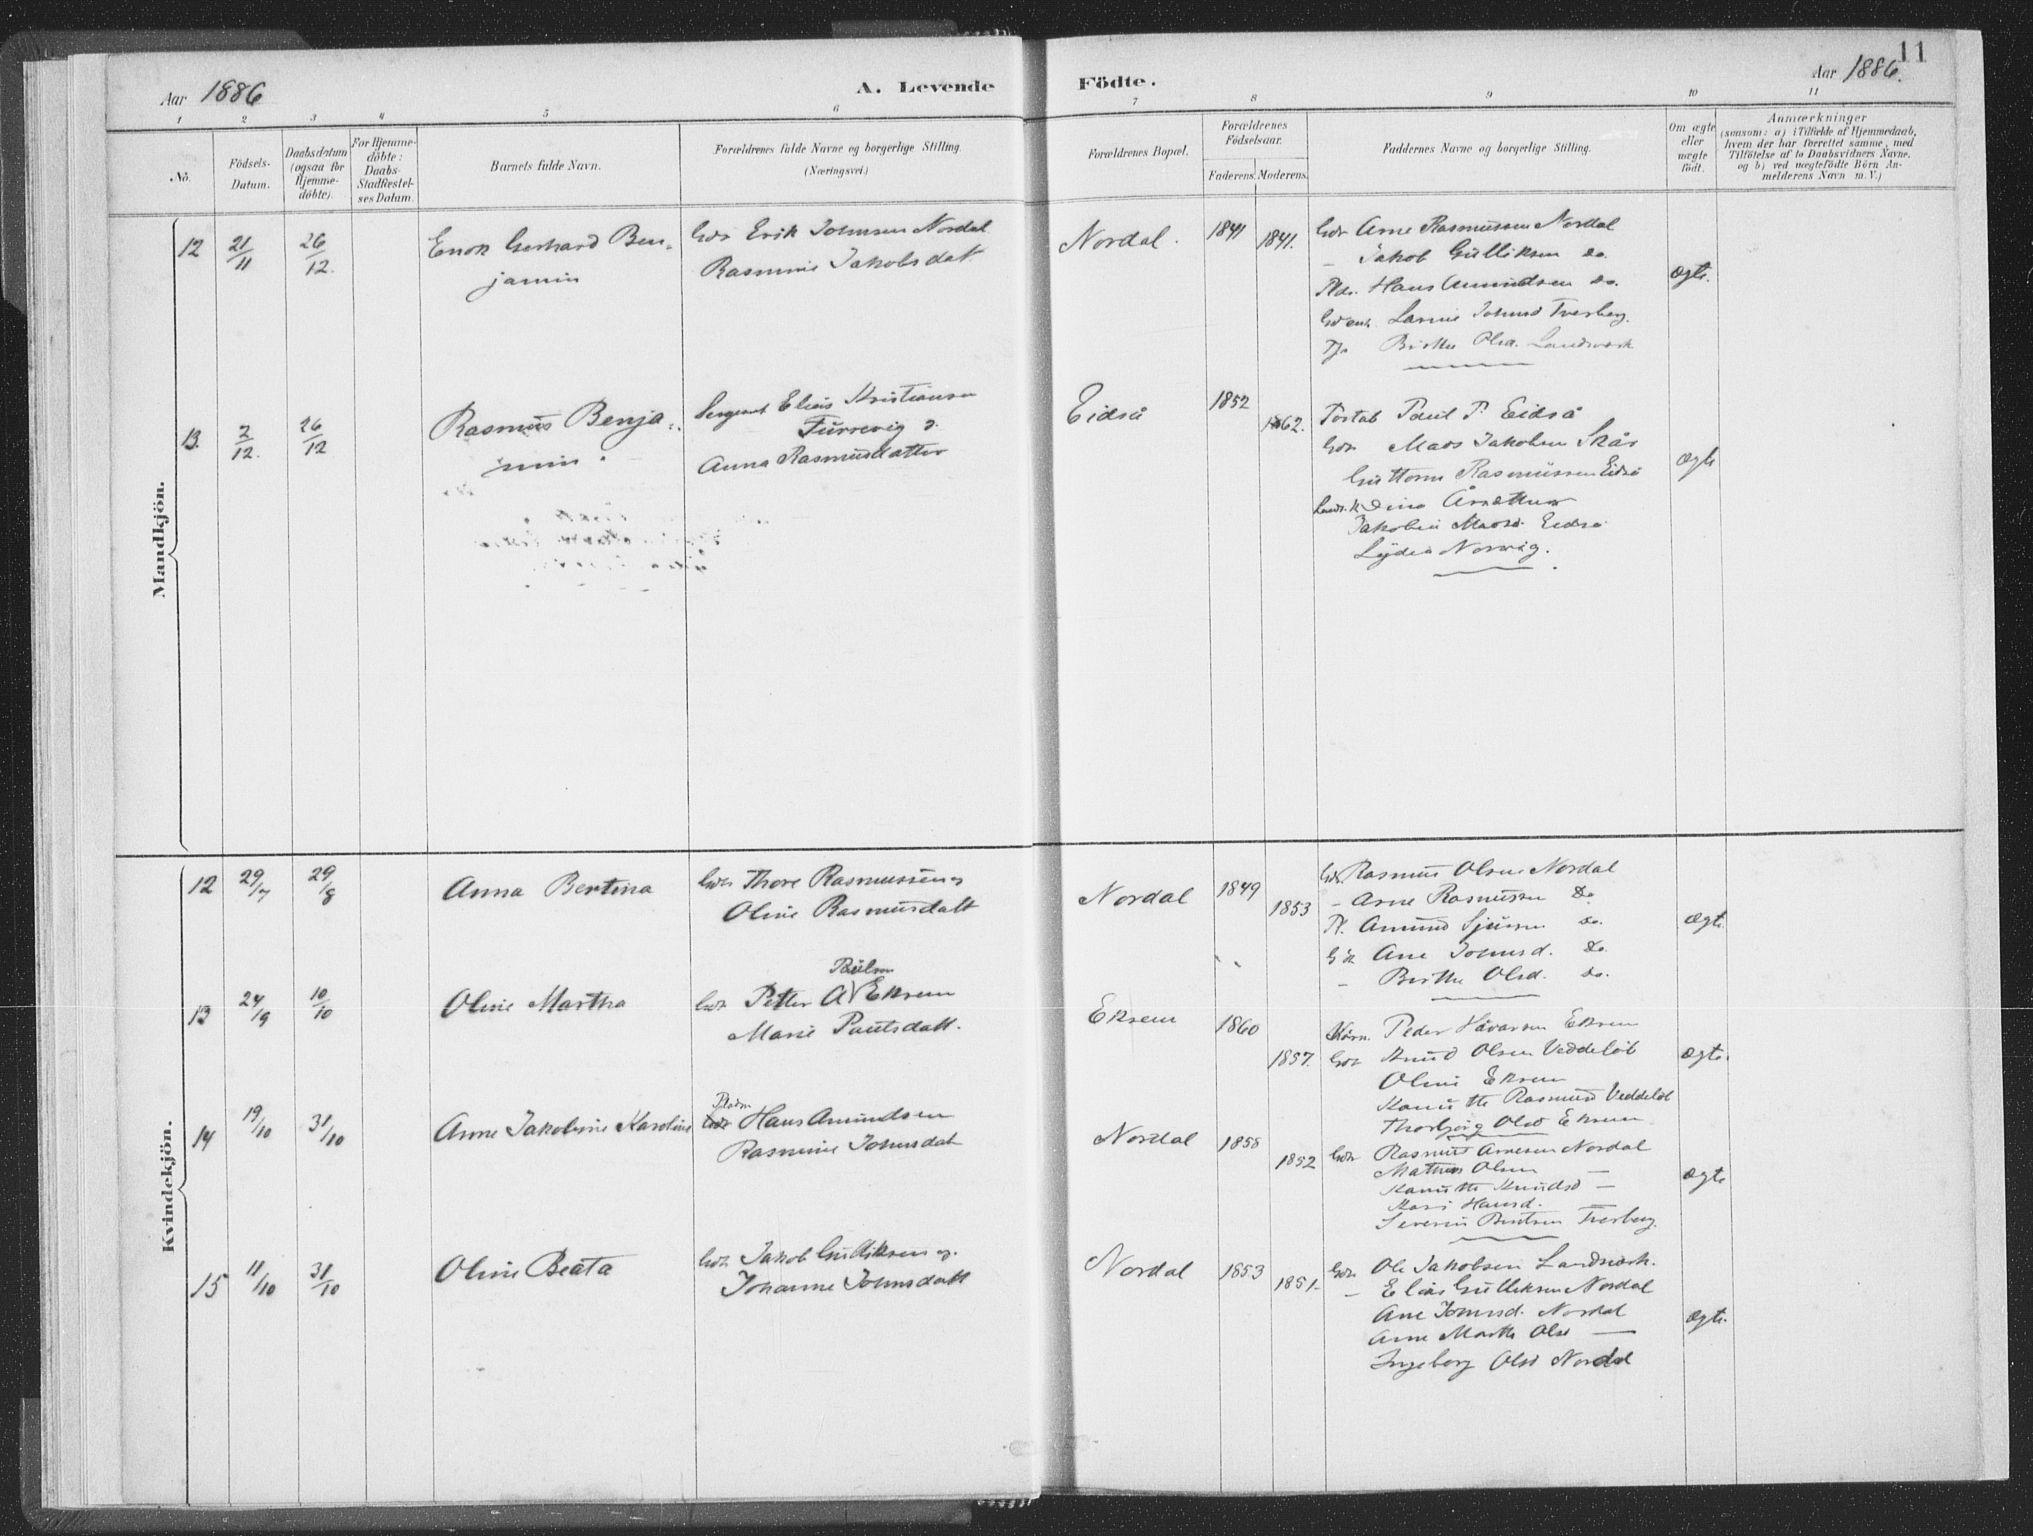 11
Aar 1886
A. Levende Födte.
Aar 1886.
1 2 3 4 5 6 7 8 9 10 11
No.
Födsels-Datum.
Daabsdatum (ogsaa for Hjemmedöbte).
For Hjemmedöbte: Daabs-Stadfæstelses Datum.
Barnets fulde Navn.
Forældrenes fulde Navne og borgerlige Stilling. (Næringsvei.)
Forældrenes Bopæl.
Forældrenes Födselsaar.
Faderens. Moderens.
Faddernes Navne og borgerlige Stilling.
Om ægte eller uægte födt.
Anmærkninger
(saasom: a) i Tilfælde af Hjemmedaab, hvem der har forrettet samme, med Tilföielse af to Daabsvidners Navne, og b) ved uægtefödte Börn Anmelderens Navn m. V.)
Mandkjön.
12 21/11 26/12. Enok Gerhard Ben-
jamin
Gdr Erik Johnsen Nordal
Rasmine Jakobsdat
Nordal. 1841 1841.
Gdr Arne Rasmussen Nordal
– Jakob Gulliksen do.
Pldr. Hans Amundsen do.
Larsine Johnsd Tverberg.
Tj. Birthe Olsd. Landværk
Ægte.
13. 2/12. 26/12 Rasmus Benja-
min.
Sergeant Elias Kristiansen
Furrevig o.
Anna Rasmusdatter
Eidså 1852 1862.
Paul P. Eidså
Gdr Mads Jakobsen Skår
Guttorm Rasmussen Eidså
Dina
Jakobine Madsd. Eidså
Lydia Norvig.
Ægte
Kvindekjön.
12 29/7 29/8 Anna Bertina
Gdr Thore Rasmussen og
Oline Rasmusdatt
Nordal 1849 1853
Gdr. Rasmus Olsen Nordal
– Arne Rasmussen Do
Pl. Amund Sjursen do.
Ane Johnsd. Do.
– Birthe Olsd. do.
Ægte.
13 24/9 10/10 Oline Martha
Paulsen
Gdr Petter A Eksem
Marie Paulsdatt.
Eksem 1860 1857.
Peder Håvarsen Eksem
Gdr Knud Olsen Veddelöb
Oline Eksem
Kanutte Rasmusd Veddelöb
Thorbjörg Olsd Eksem
Ægte.
14 19/10 31/10 Anne Jakobine Karoline
Pladsm
Gdr Hans Amundsen
Rasmine Johnsdat
Nordal 1858 1852
Gdr Rasmus Arnesen Nordal
Mathias Olsen –
Kanutte Knudsd –
Kari Hansd. –
Severin Bentsen Tverberg.
Ægte
15 11/10 31/10 Oline Beata
Gdr Jakob Gulliksen og.
Johanne Johnsdatt
Nordal 1853 1851.
Gdr. Ole Jakobsen Landværk.
– Elias Gulliksen Nordal
Ane Johnsd. Nordal
Anne Marthe Olsd –
Ingeborg Olsd Nordal
Ægte.